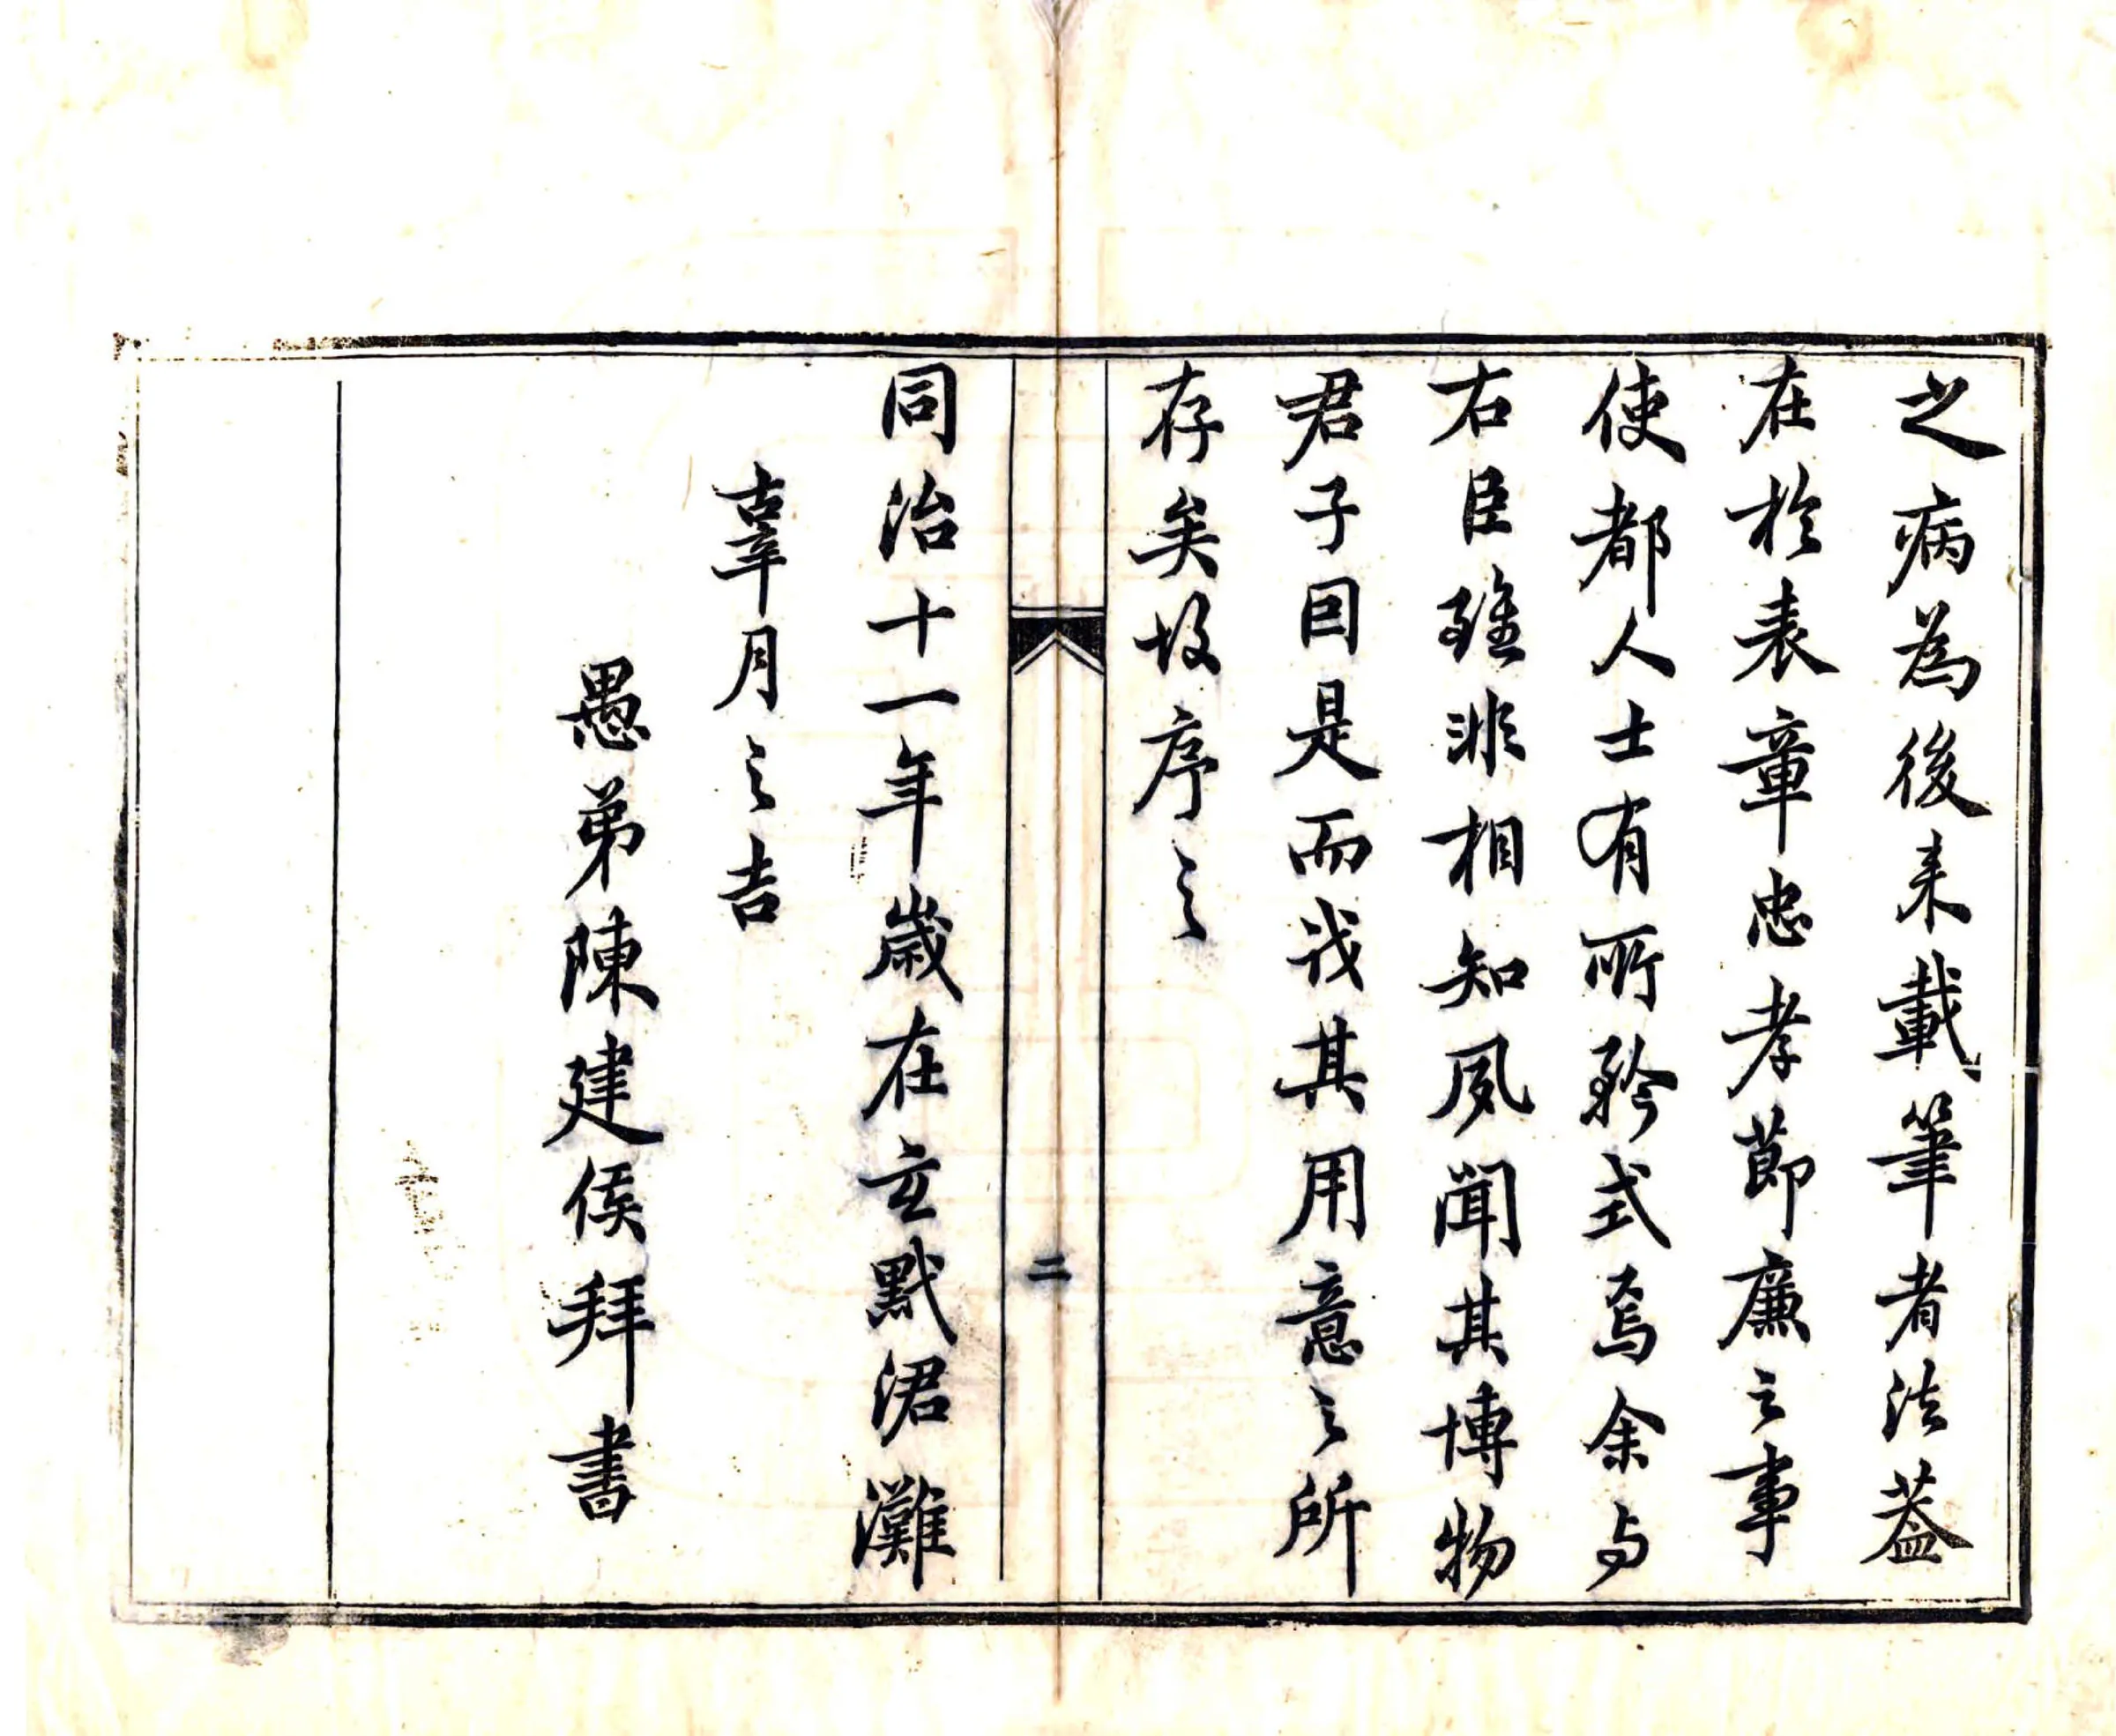 之病為後来載筆者法蓋
在於表章忠孝節廉之事
使都人士有所矜式焉余与
右臣雖非相知夙聞其博物
君子因是而识其用意之所
存矣故序之
二
同治十一年歲在玄黓涒灘
辜月之吉
愚弟陳建侯拜書